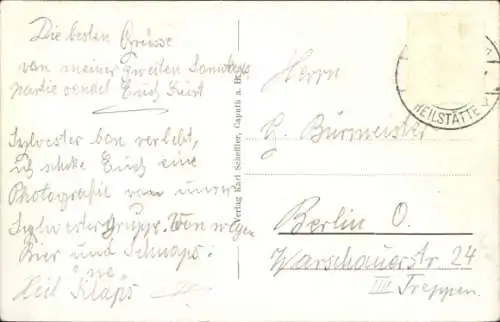 Die besten Grüsse
von meiner zweiten Sonntags
partie sendet Euch Kurt
Sylvester bon verlebt,
ich schike Euch eine
Photografie von unsrer
Sylvestergruppe. Von wegen
Bier und Schnaps.
"na"
Heil Klaps
Verlag Karl Scheffler, Caputh a. H.
HEILSTÄTTE
Herrn
G. Bürmeister
Berlin O.
Warschauerstr 24
IIII Treppen.